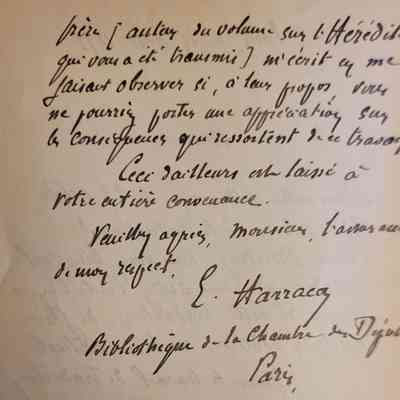 frère [auteur du volume sur l'Hérédit
qui vous a été transmis] m'écrit en me
faisant observer si, à leur propos, vous
ne pourriez porter une appréciation sur
les conséquences qui ressortent de ce travail
Ceci d'ailleurs est laissé à
votre entière convenance.
Veuillez agréer, monsieur, l'assurance
de mon respect.
E. Harracq
Bibliothèque de la Chambre des Députés
Paris,